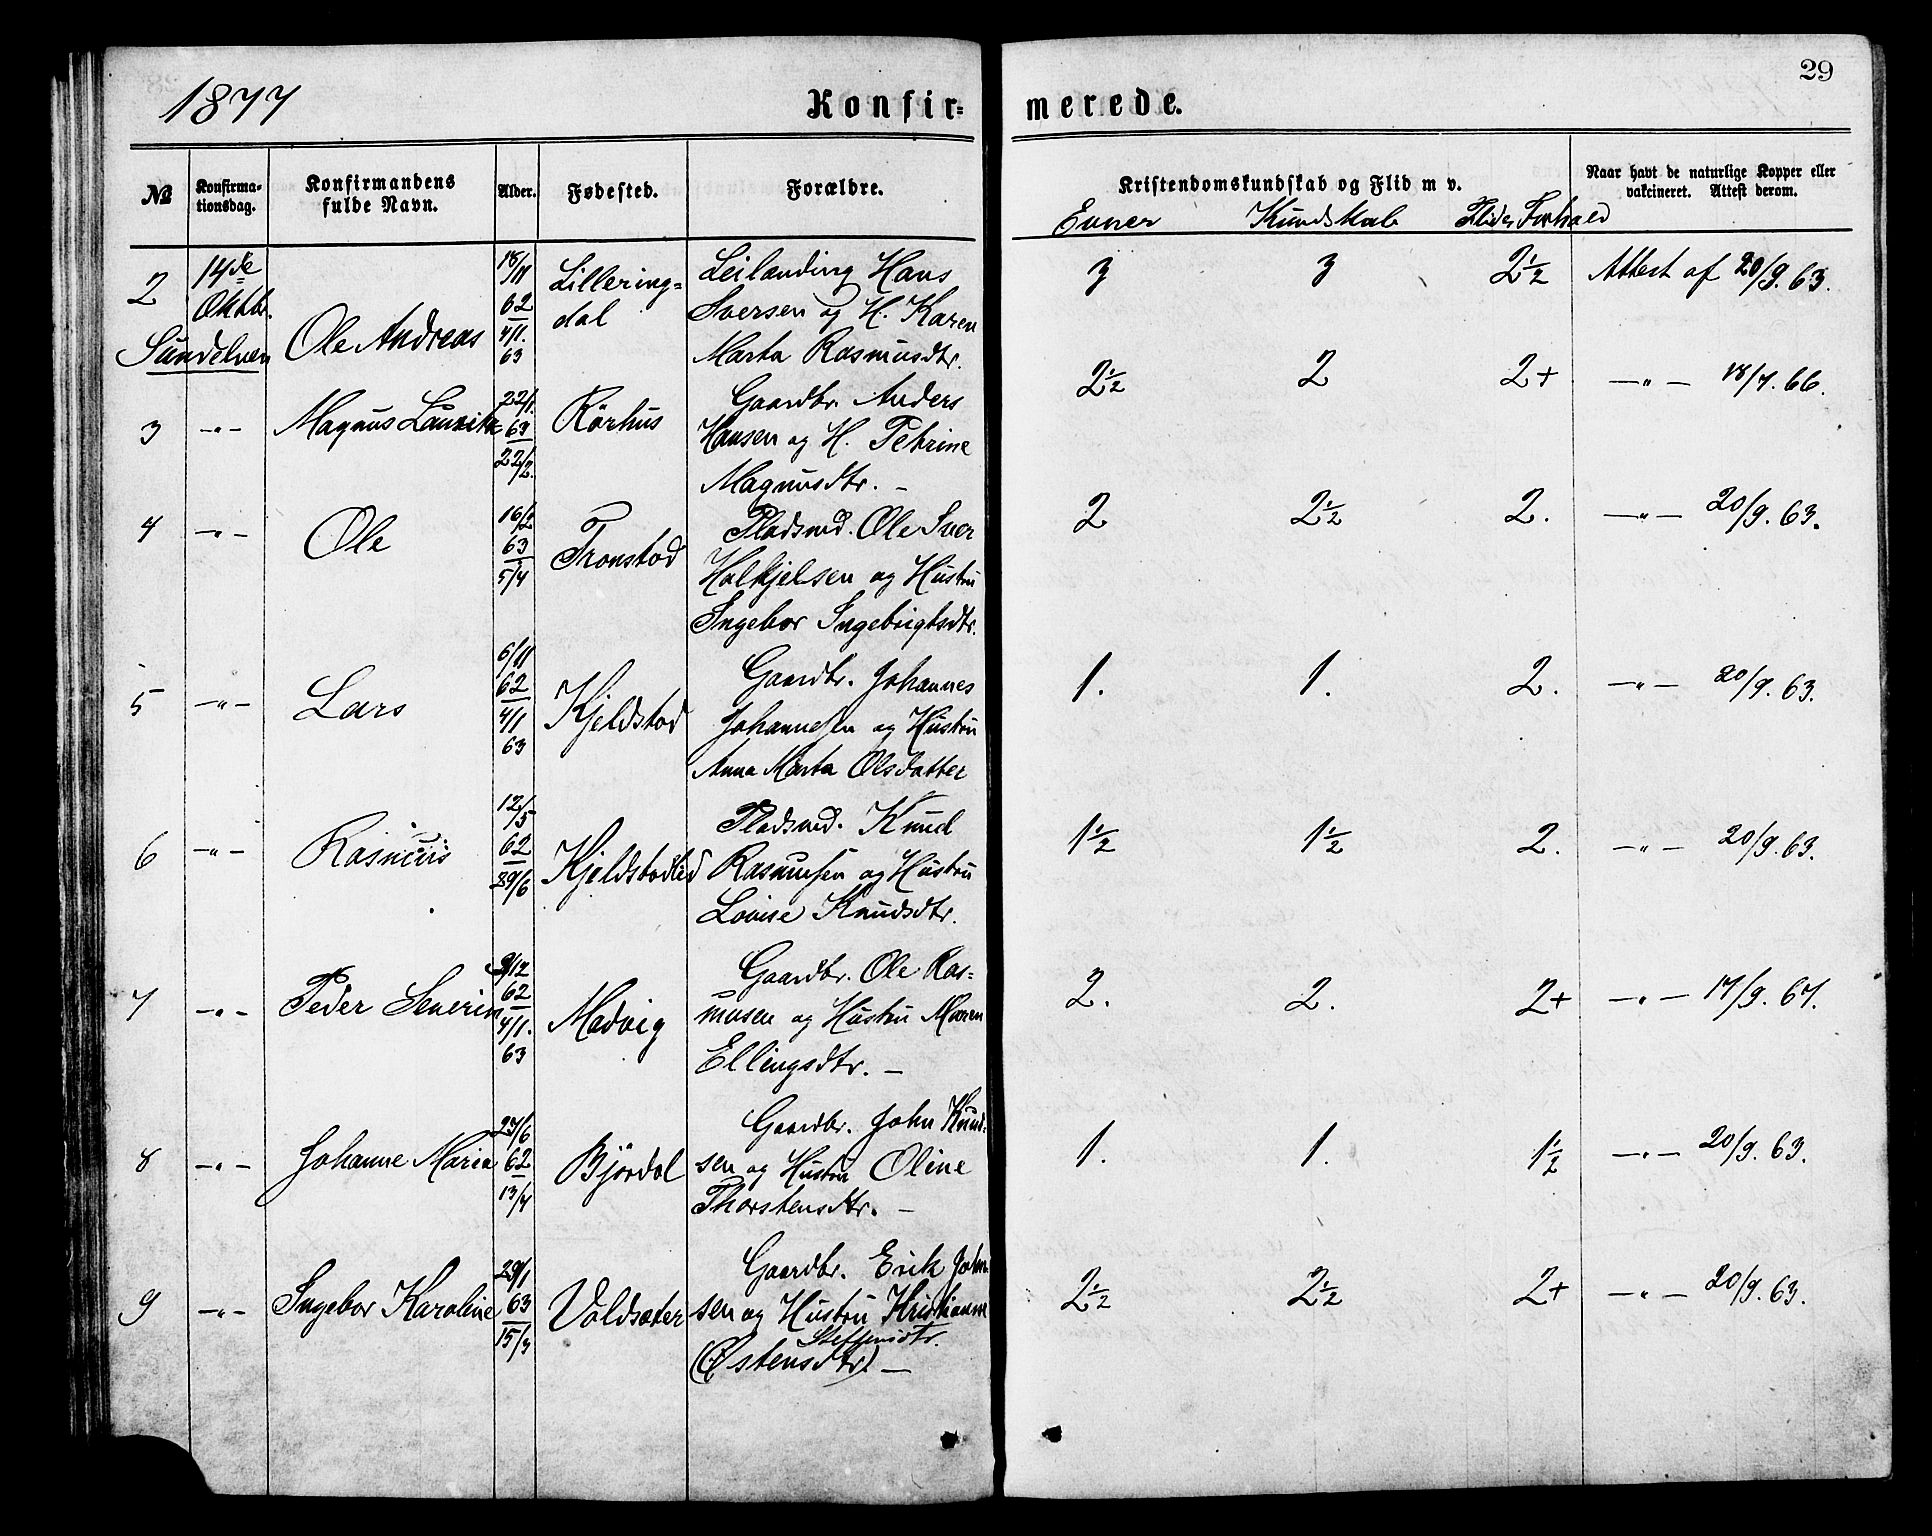 1877
Konfir-
merede.
29
№
Konfirma-
tionsdag.
Konfirmandens
fulde Navn.
Alder.
Fødested.
Forældre.
Kristendomskundskab og Flid m v.
Naar havt de naturlige Kopper eller
vakcineret. Attest derom.
Evner Kundskab Flid og Forhold
2 14de Oktbr. Sundelven
Ole Andreas
18/11 62 4/1. 63
Lillering-
dal
Leilænding Hans
Iversen og H. Karen
Marta Rasmusdtr.
3 3 2½ Attest af 20/9. 63.
3 -"- Magnus Lauritz
22/1. 63 22/2.
Rørhus
Gaardbr. Anders
Hansen og H. Petrine
Magnusdtr. -
2½ 2 2+ -"- 18/7. 66.
4 -"- Ole
16/2 63 5/4
Tronstad
Pladsmd. Ole Iver
Halkjelsen og Hustru
Ingebor Ingebrigtsdtr.
2 2½ 2. -"- 20/9. 63.
5 -"- Lars
6/11 62 4/1 63
Kjeldstad
Gaardbr. Johannes
Johannesen og Hustru
Anna Marta Olsdatter
1. 1. 2. -"- 20/9. 63.
6 -"- Rasmus
12/5 62 29/6
Kjeldstadlid
Pladsmd. Knud
Rasmusen og Hustru
Lovise Knudsdtr.
1½ 1½ 2. -"- 20/9. 63.
7 -"- Peder Severin
9/12 62 4/1. 63
Madvig
Gaardbr. Ole Ras-
musen og Hustru Maren
Ellingsdtr. -
2. 2. 2+ -"- 17/9. 67.
8 -"- Johanne Maria
24/6 62 13/7
Bjørdal
Gaardbr. John Knud-
sen og Hustru Oline
Thorstensdtr. -
1. 1. 1½ -"- 20/9. 63.
9 -"- Ingebor Karoline
29/1 63 15/3
Valdsæter
Gaardbr. Erik John-
sen og Hustru Kristianne
Steffensdtr.
(Østensdtr.) -
2½ 2½ 2+ -"- 20/9. 63.